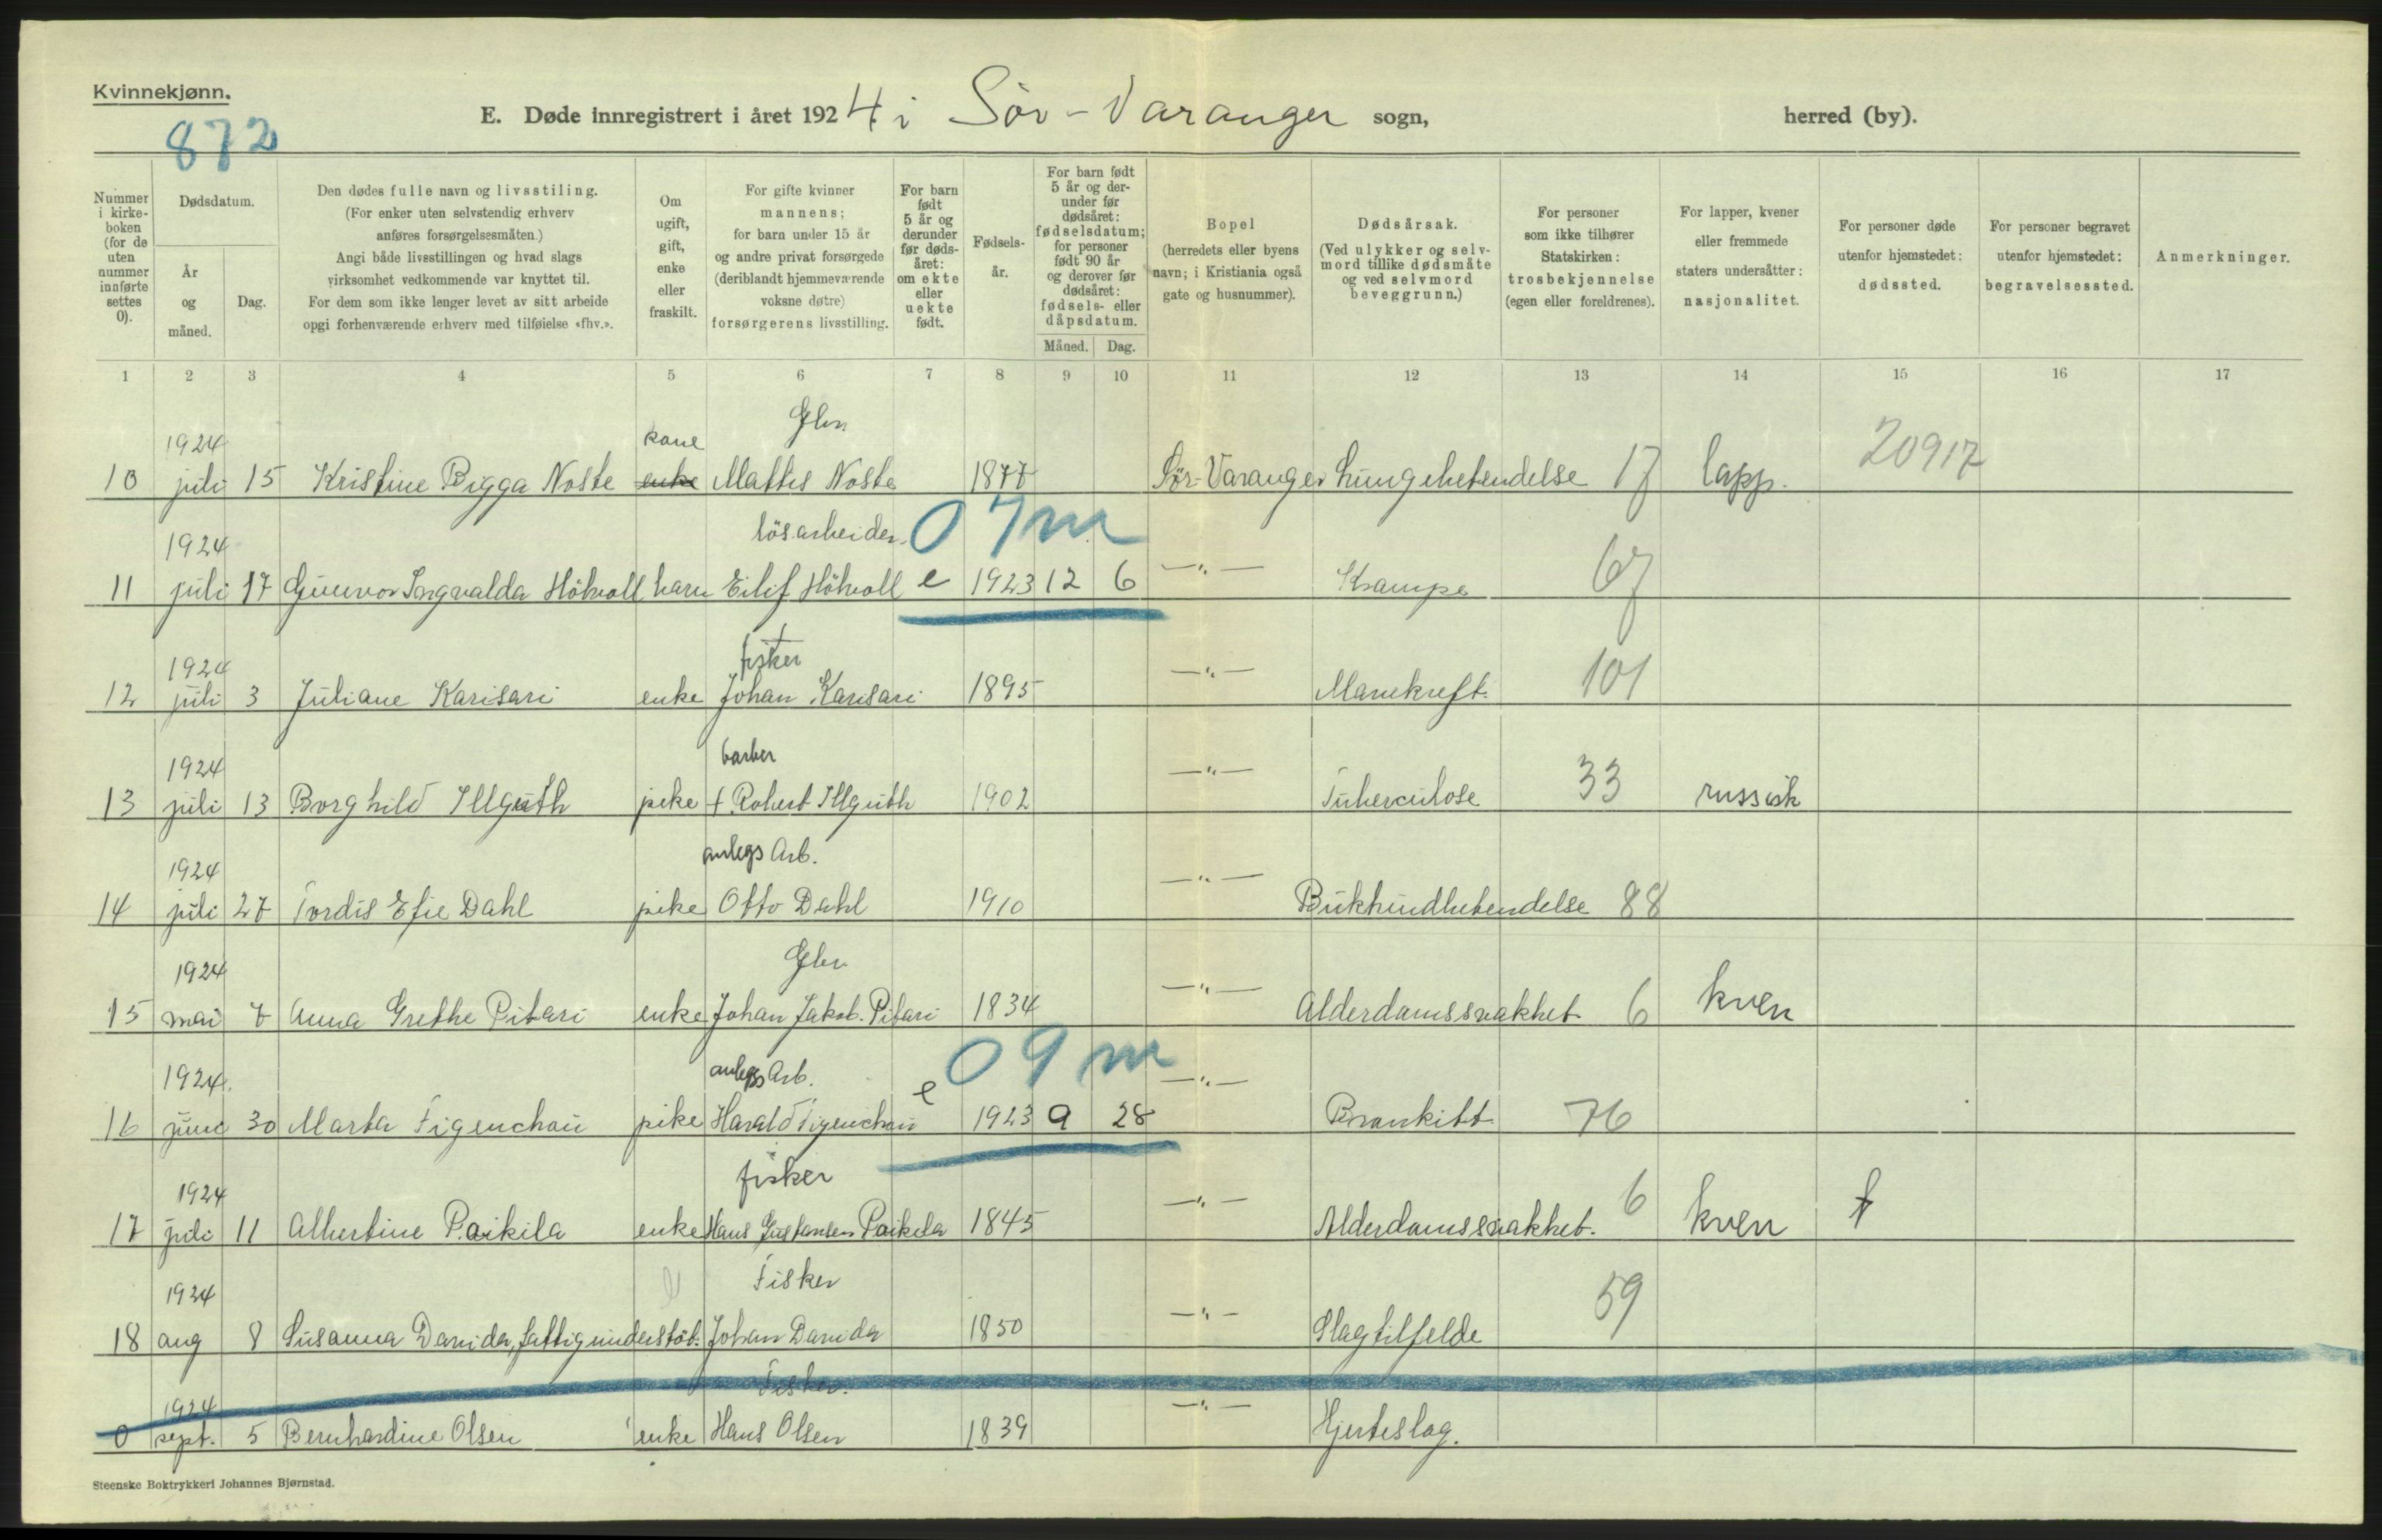 Kvinnekjønn.
872
E. Døde innregistrert i året 1924 i Sör-Varanger sogn, herred (by).
Nummer i kirkeboken (for de uten nummer innførte settes 0).
Dødsdatum.
År og måned.
Dag.
Den dødes fulle navn og livsstiling.
(For enker uten selvstendig erhverv
anføres forsørgelsesmåten.)
Angi både livsstillingen og hvad slags
virksomhet vedkommende var knyttet til.
For dem som ikke lenger levet av sitt arbeide
opgi forhenværende erhverv med tilføielse «fhv.».
Om ugift, gift, enke eller fraskilt.
For gifte kvinner
mannens;
for barn under 15 år
og andre privat forsørgede
(deriblandt hjemmeværende
voksne døtre)
forsørgerens livsstilling.
For barn født 5 år og derunder før dødsåret: om ekte eller uekte født.
Fødselsår.
For barn født 5 år og derunder før dødsåret: fødselsdatum; for personer født 90 år og derover før dødsåret: fødsels- eller dåpsdatum.
Måned. Dag.
Bopel
(herredets eller byens
navn; i Kristiania også
gate og husnummer).
Dødsårsak.
(Ved ulykker og selvmord tillike dødsmåte
og ved selvmord
beveggrunn.)
For personer
som ikke tilhører
Statskirken:
trosbekjennelse
(egen eller foreldrenes).
For lapper, kvener
eller fremmede
staters undersåtter:
nasjonalitet.
For personer døde
utenfor hjemstedet:
dødssted.
For personer begravet
utenfor hjemstedet:
begravelsessted.
Anmerkninger.
1 2 3 4 5 6 7 8 9 10 11 12 13 14 15 16 17
1924 kone Gbr.
10 juli 15 Kristine Bigga Noste enke Mattis Noste 1877 Sör-Varanger Lungebetendelse 17 lapp. 20917
1924 lösarbeider 07m
11 juli 17 Gunvor Ingvalda Höhvoll barn Eilif Höhvoll e 1923 12 6 —"— Krampe 67
1924 fisker
12 juli 3 Juliane Karisari enke Johan Karisari 1895 —"— Mavekreft. 101
1924 barber
13 juli 13 Borghild Illguth pike + Robert Illguth 1902 —"— Tuberculose 33 russisk
1924 anlegs Arb.
14 juli 27 Tordis Efie Dahl pike Otto Dahl 1910 —"— Bukhindbetendelse 88
1924 Gbr.
15 mai 7 Anna Grethe Pitari enke Johan Jakob Pitari 1834 —"— Alderdomssvakhet 6 kven
1924. anlegs Arb. 09m
16 june 30 Marta Figenchau pike Harald Figenchau e 1923 9 28 —"— Bronkitt 76
1924 fisker
17 juli 11 Albertine Paikila enke Hans Gustavsen Paikila 1845 —"— Alderdomssvakhet. 6 kven
1924 Fisker
18 aug 8 Susanna Davida, fattigunderstöt. Johan Davida 1850 —"— Slagtilfelde 59
1924 Fisker.
0 sept. 5 Bernhardine Olsen enke Hans Olsen 1839 —"— Hjerteslag.
Steenske Boktrykkeri Johannes Bjørnstad.